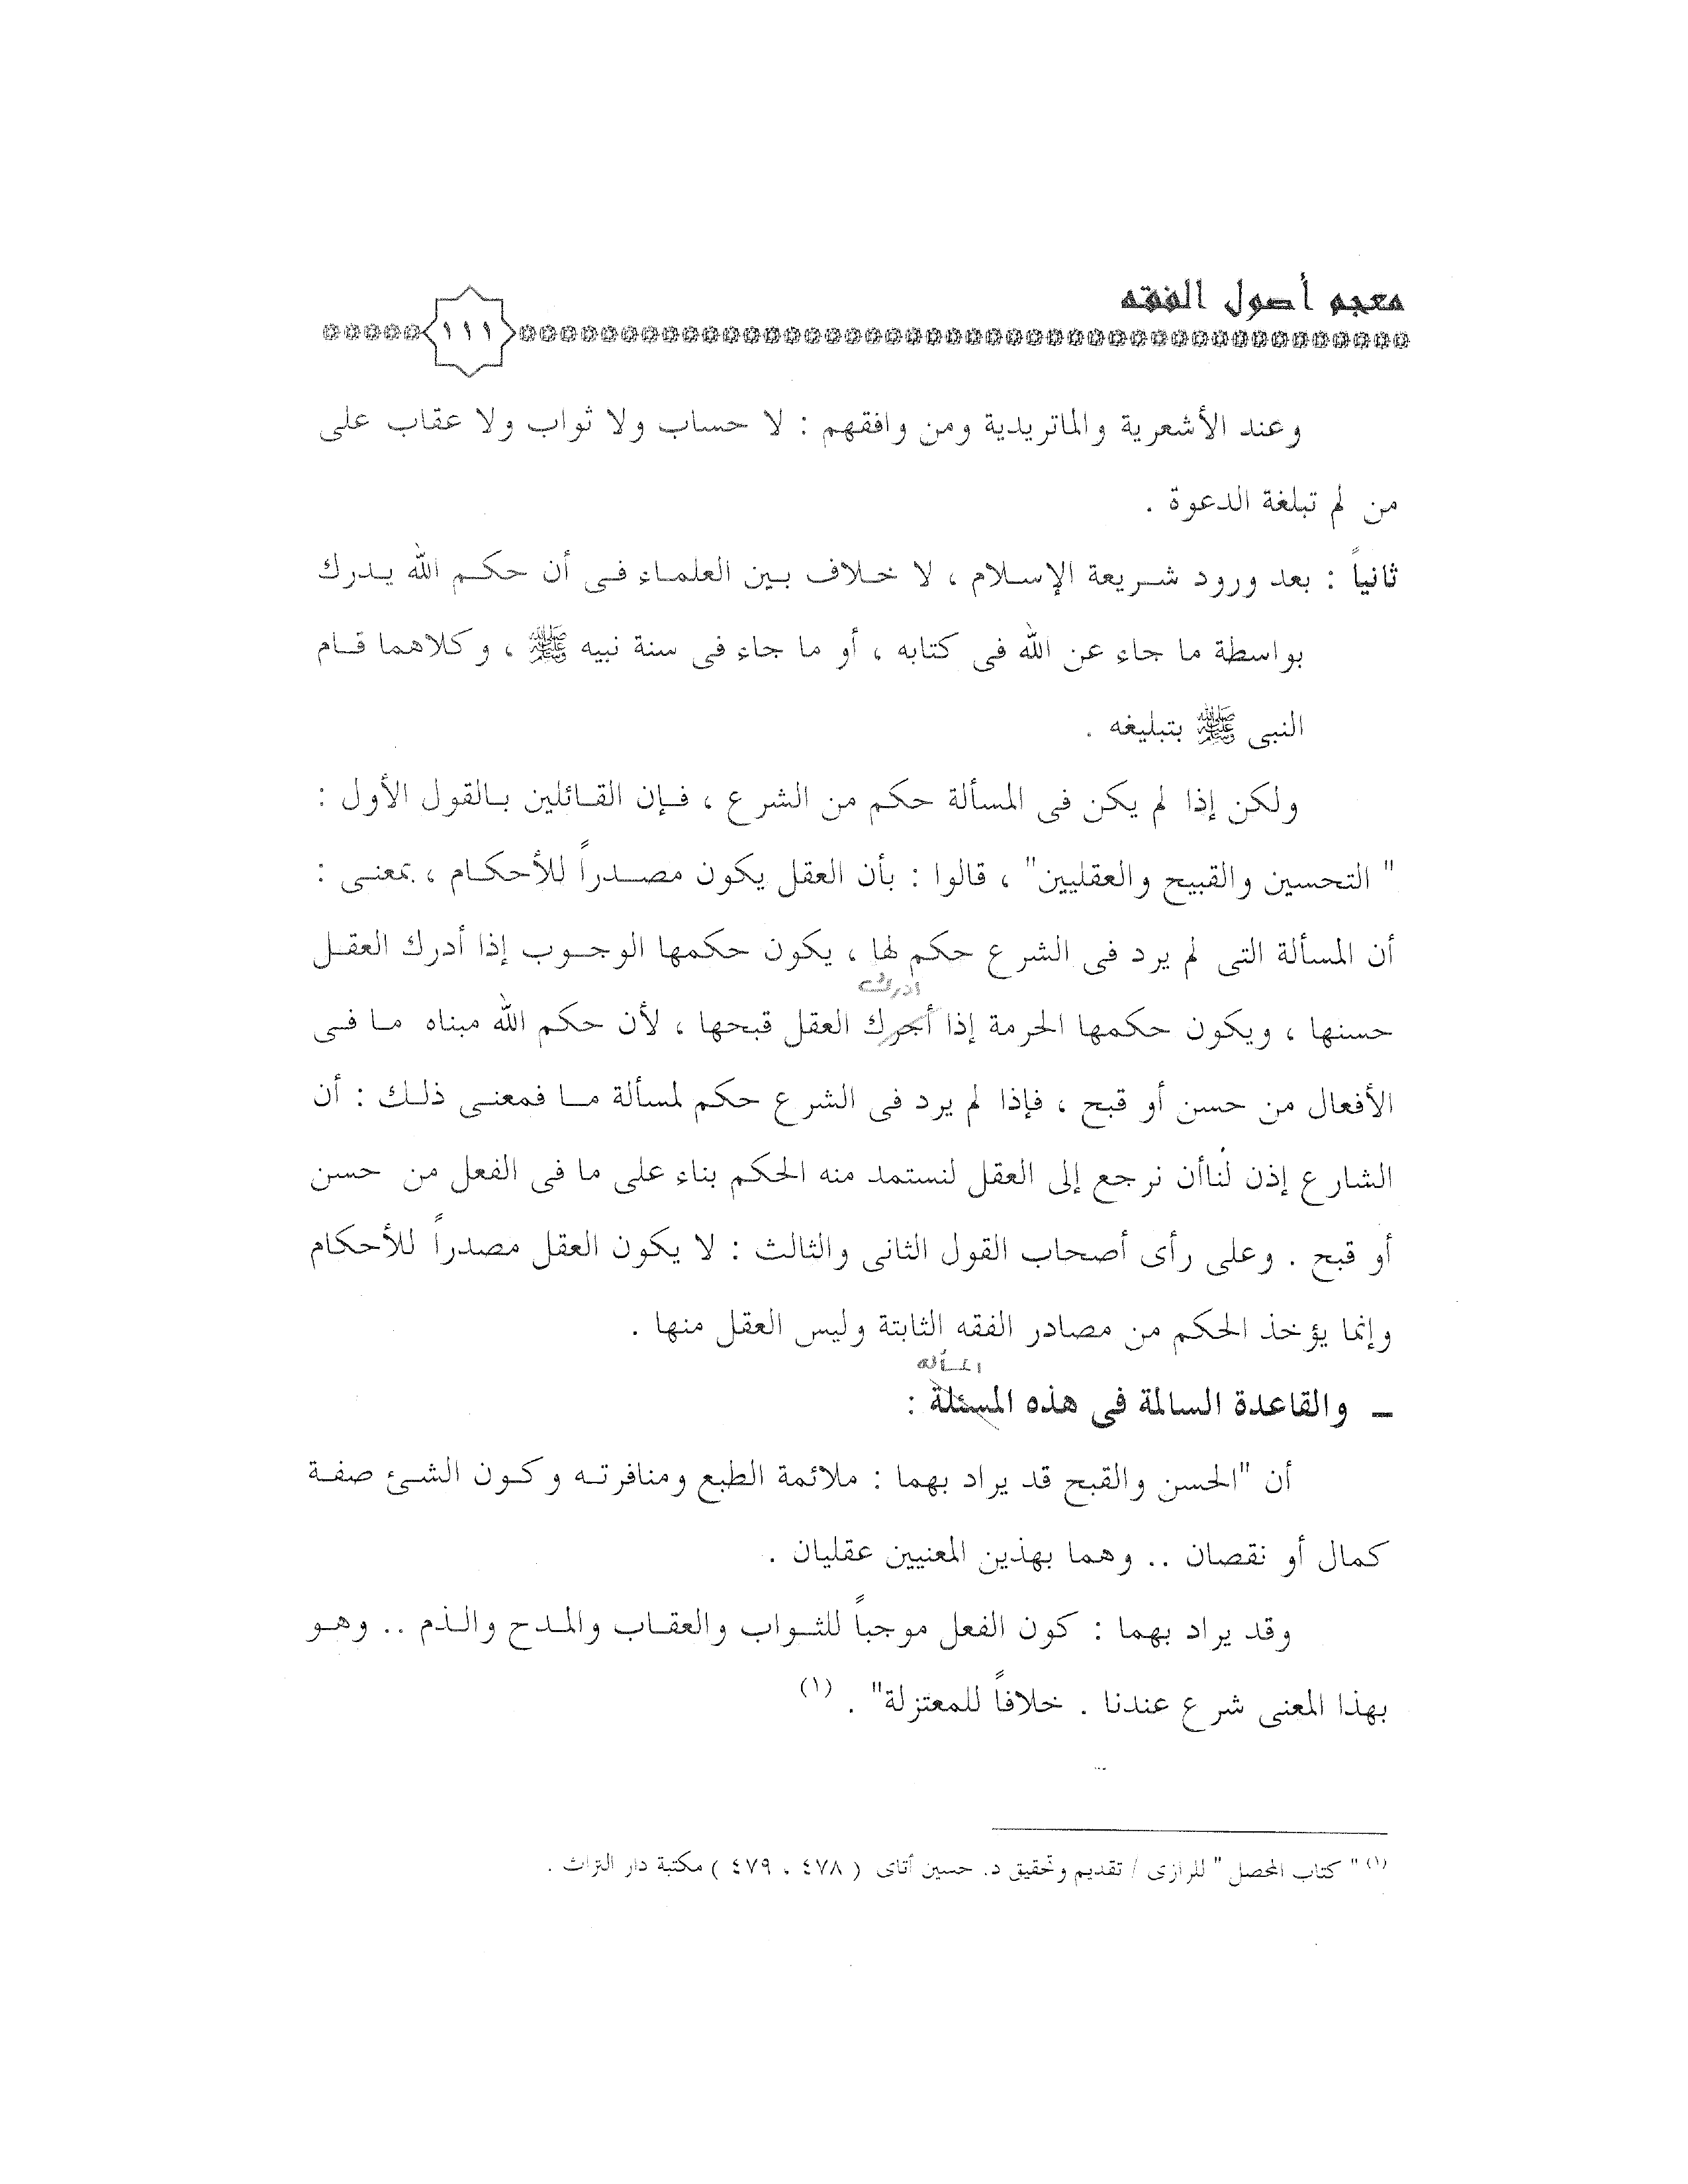 معجم أصول الفقه
١١١
وعند الأشعرية والماتريدية ومن وافقهم : لا حساب ولا ثواب ولا عقاب على
من لم تبلغة الدعوة .
ثانياً : بعد ورود شريعة الإسلام ، لا خلاف بين العلماء فى أن حكم الله يدرك
بواسطة ما جاء عن الله فى كتابه ، أو ما جاء فى سنة نبيه ﷺ ، وكلاهما قام
النبى ﷺ بتبليغه .
ولكن إذا لم يكن فى المسألة حكم من الشرع ، فإن القائلين بالقول الأول :
" التحسين والقبيح والعقليين" ، قالوا : بأن العقل يكون مصدراً للأحكام ، بمعنى :
أن المسألة التى لم يرد فى الشرع حكم لها ، يكون حكمها الوجوب إذا أدرك العقل
ادرك
حسنها ، ويكون حكمها الحرمة إذا أجرك العقل قبحها ، لأن حكم الله مبناه ما فى
الأفعال من حسن أو قبح ، فإذا لم يرد فى الشرع حكم لمسألة ما فمعنى ذلك : أن
الشارع إذن لناأن نرجع إلى العقل لنستمد منه الحكم بناء على ما فى الفعل من حسن
أو قبح . وعلى رأى أصحاب القول الثانى والثالث : لا يكون العقل مصدراً للأحكام
وإنما يؤخذ الحكم من مصادر الفقه الثابتة وليس العقل منها .
المسألة
– والقاعدة السالمة فى هذه المسئلة :
أن "الحسن والقبح قد يراد بهما : ملائمة الطبع ومنافرته وكون الشئ صفة
كمال أو نقصان .. وهما بهذين المعنيين عقليان .
وقد يراد بهما : كون الفعل موجباً للثواب والعقاب والمدح والذم .. وهو
بهذا المعنى شرع عندنا . خلافاً للمعتزلة" . (١)
(١) " كتاب المحصل " للرازى / تقديم وتحقيق د. حسين أتاى ( ٤٧٨ ، ٤٧٩ ) مكتبة دار التراث .